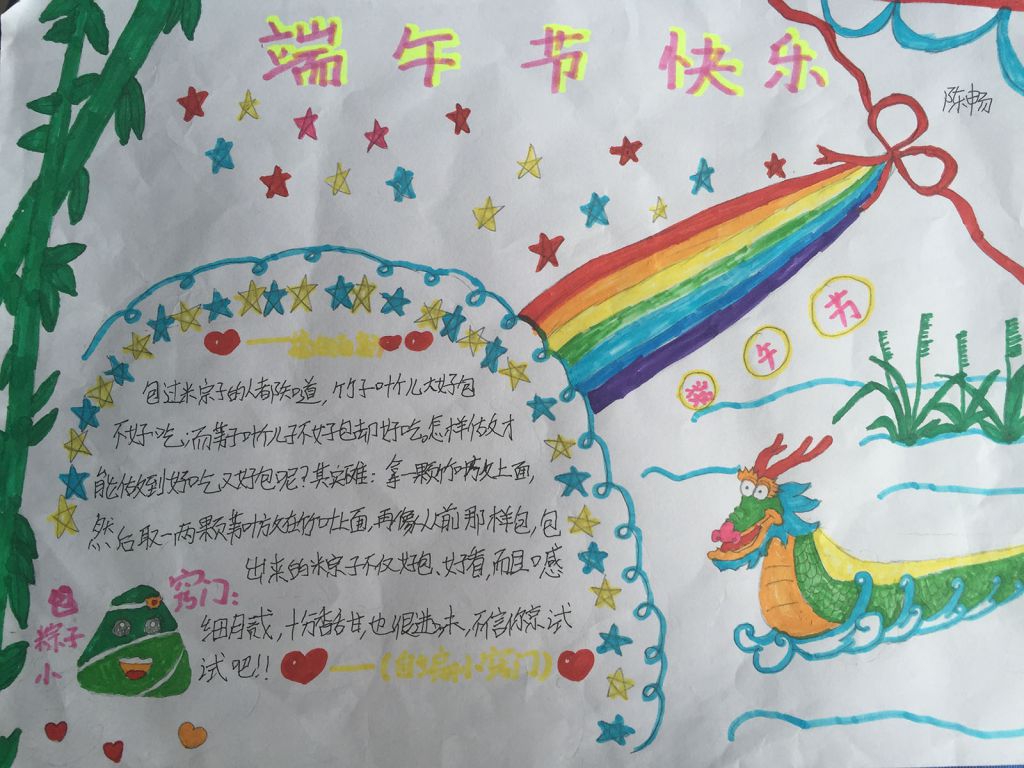 端午节快乐
陈畅
端午节
包过粽子的人都知道，竹子叶儿大好包
不好吃；而箬子叶儿不好包却好吃。怎样做才
能做到好吃又好包呢？其实不难：拿一颗竹叶放上面，
然后取一两颗箬叶放在竹叶上面，再像从前那样包，包
出来的粽子不仅好包、好看，而且口感
细腻，十分香甜也很进味，不信你就试
试吧！！
包粽子小窍门：
（自编小窍门）